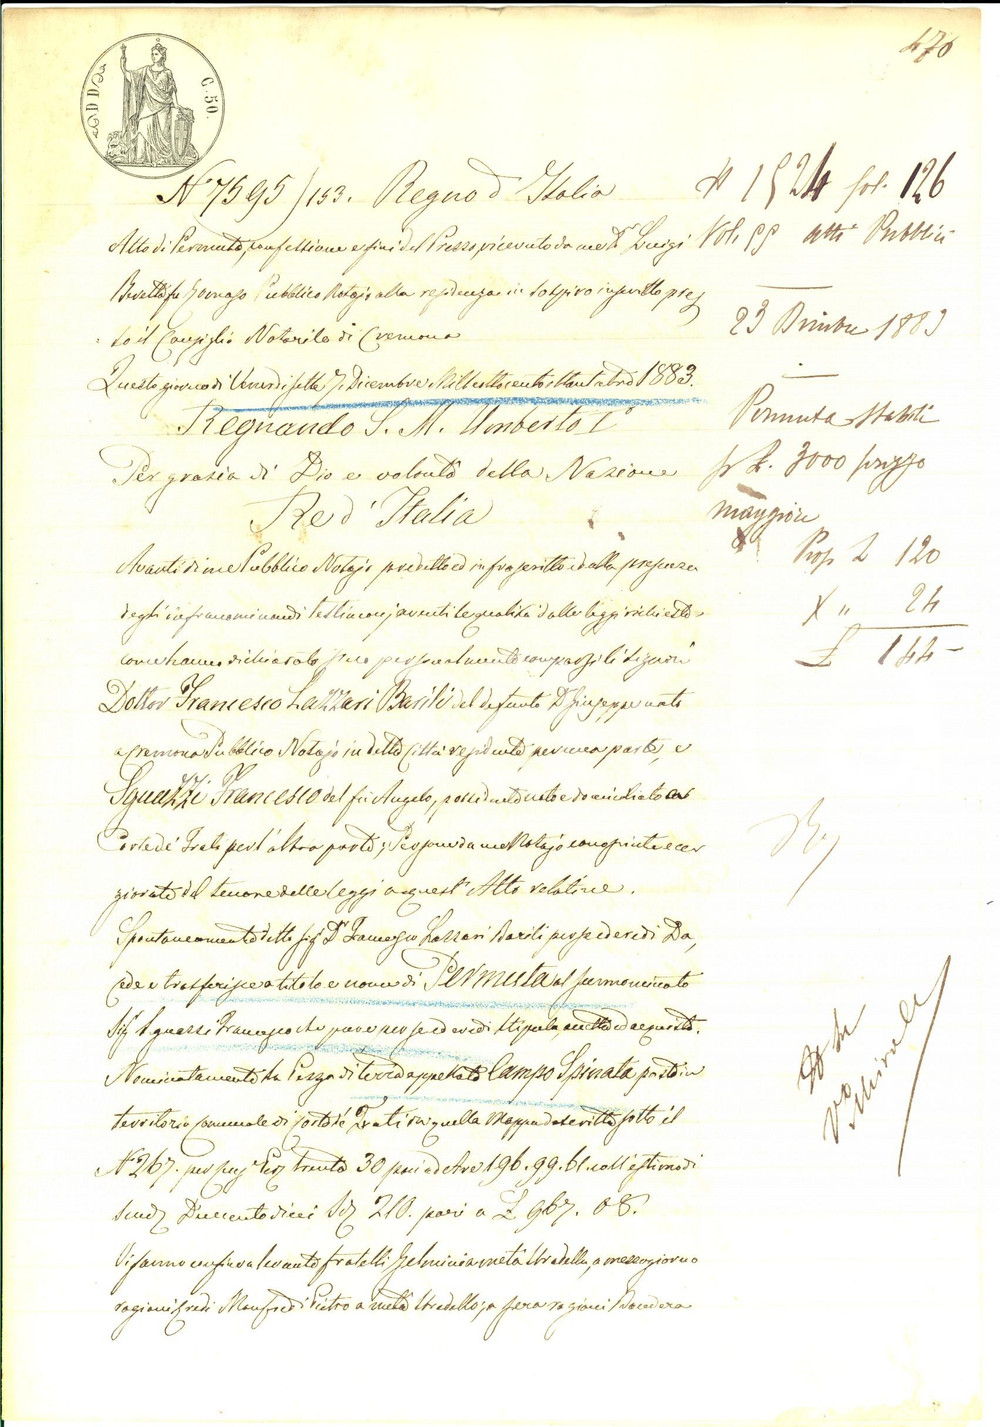 470
C. 50.
N° 7595/153. Regno d'Italia
Atto di Permuta, confessione e fini del Prezzo, ricevuto da me Dr Luigi
fu Pubblico Notajo alla residenza in Sospiro inscritto pres
so il Consiglio Notarile di Cremona
Questo giorno di Venerdi sette 7 Dicembre Milleottocentottantatre 1883.
Regnando S. M. Umberto I°
Per grazia di Dio e volontà della Nazione
Re d'Italia
Avanti di me Pubblico Notajo predetto ed infrascritto ed alla presenza
degli infranominandi testimonj aventi le qualità dalla legge richieste
come hanno dichiarato sono personalmente comparsi li Signori
Dottor Francesco Lazzari Barili del defunto Dr Giuseppe nato
a Cremona Pubblico Notajo in detta Città residente, per una parte, e
Sguazzi Francesco del fu Angelo, possidente nato e domiciliato a
Corte de' Frati per l'altra parte; Persone da me Notajo conosciute e cer
ziorate del tenore delle leggi a quest' Atto relative.
Spontaneamente detto Sigr Dr Francesco Lazzari Barili per se ed eredi Da,
cede e trasferisce a titolo e nome di Permuta al surnominato
Sigr Sguazzi Francesco che pure per se ed eredi stipula, accetta ed acquista.
Nominatamente La Pezza di terra appellata Campo Spinata posta in
territorio comunale di Corte de' Frati in quella Mappa descritta sotto il
N° 267. per Trenta 30 pari ad Are 196.99.61. coll'estimo di
scudi Duecentodieci Sdi 210. pari a £ 967. 08.
Vi fanno confine a levante fratelli Gelmini a metà Stradella, a mezzogiorno
ragioni Eredi Manfredi Pietro a metà Stradello, a sera ragioni
N 1524 fol. 126
Vol. 99 Atti Pubblici
23 Dicembre 1883
Permuta Stabili
p £. 3000 prezzo
maggiore
Prop £ 120
X " 24
£ 144 -